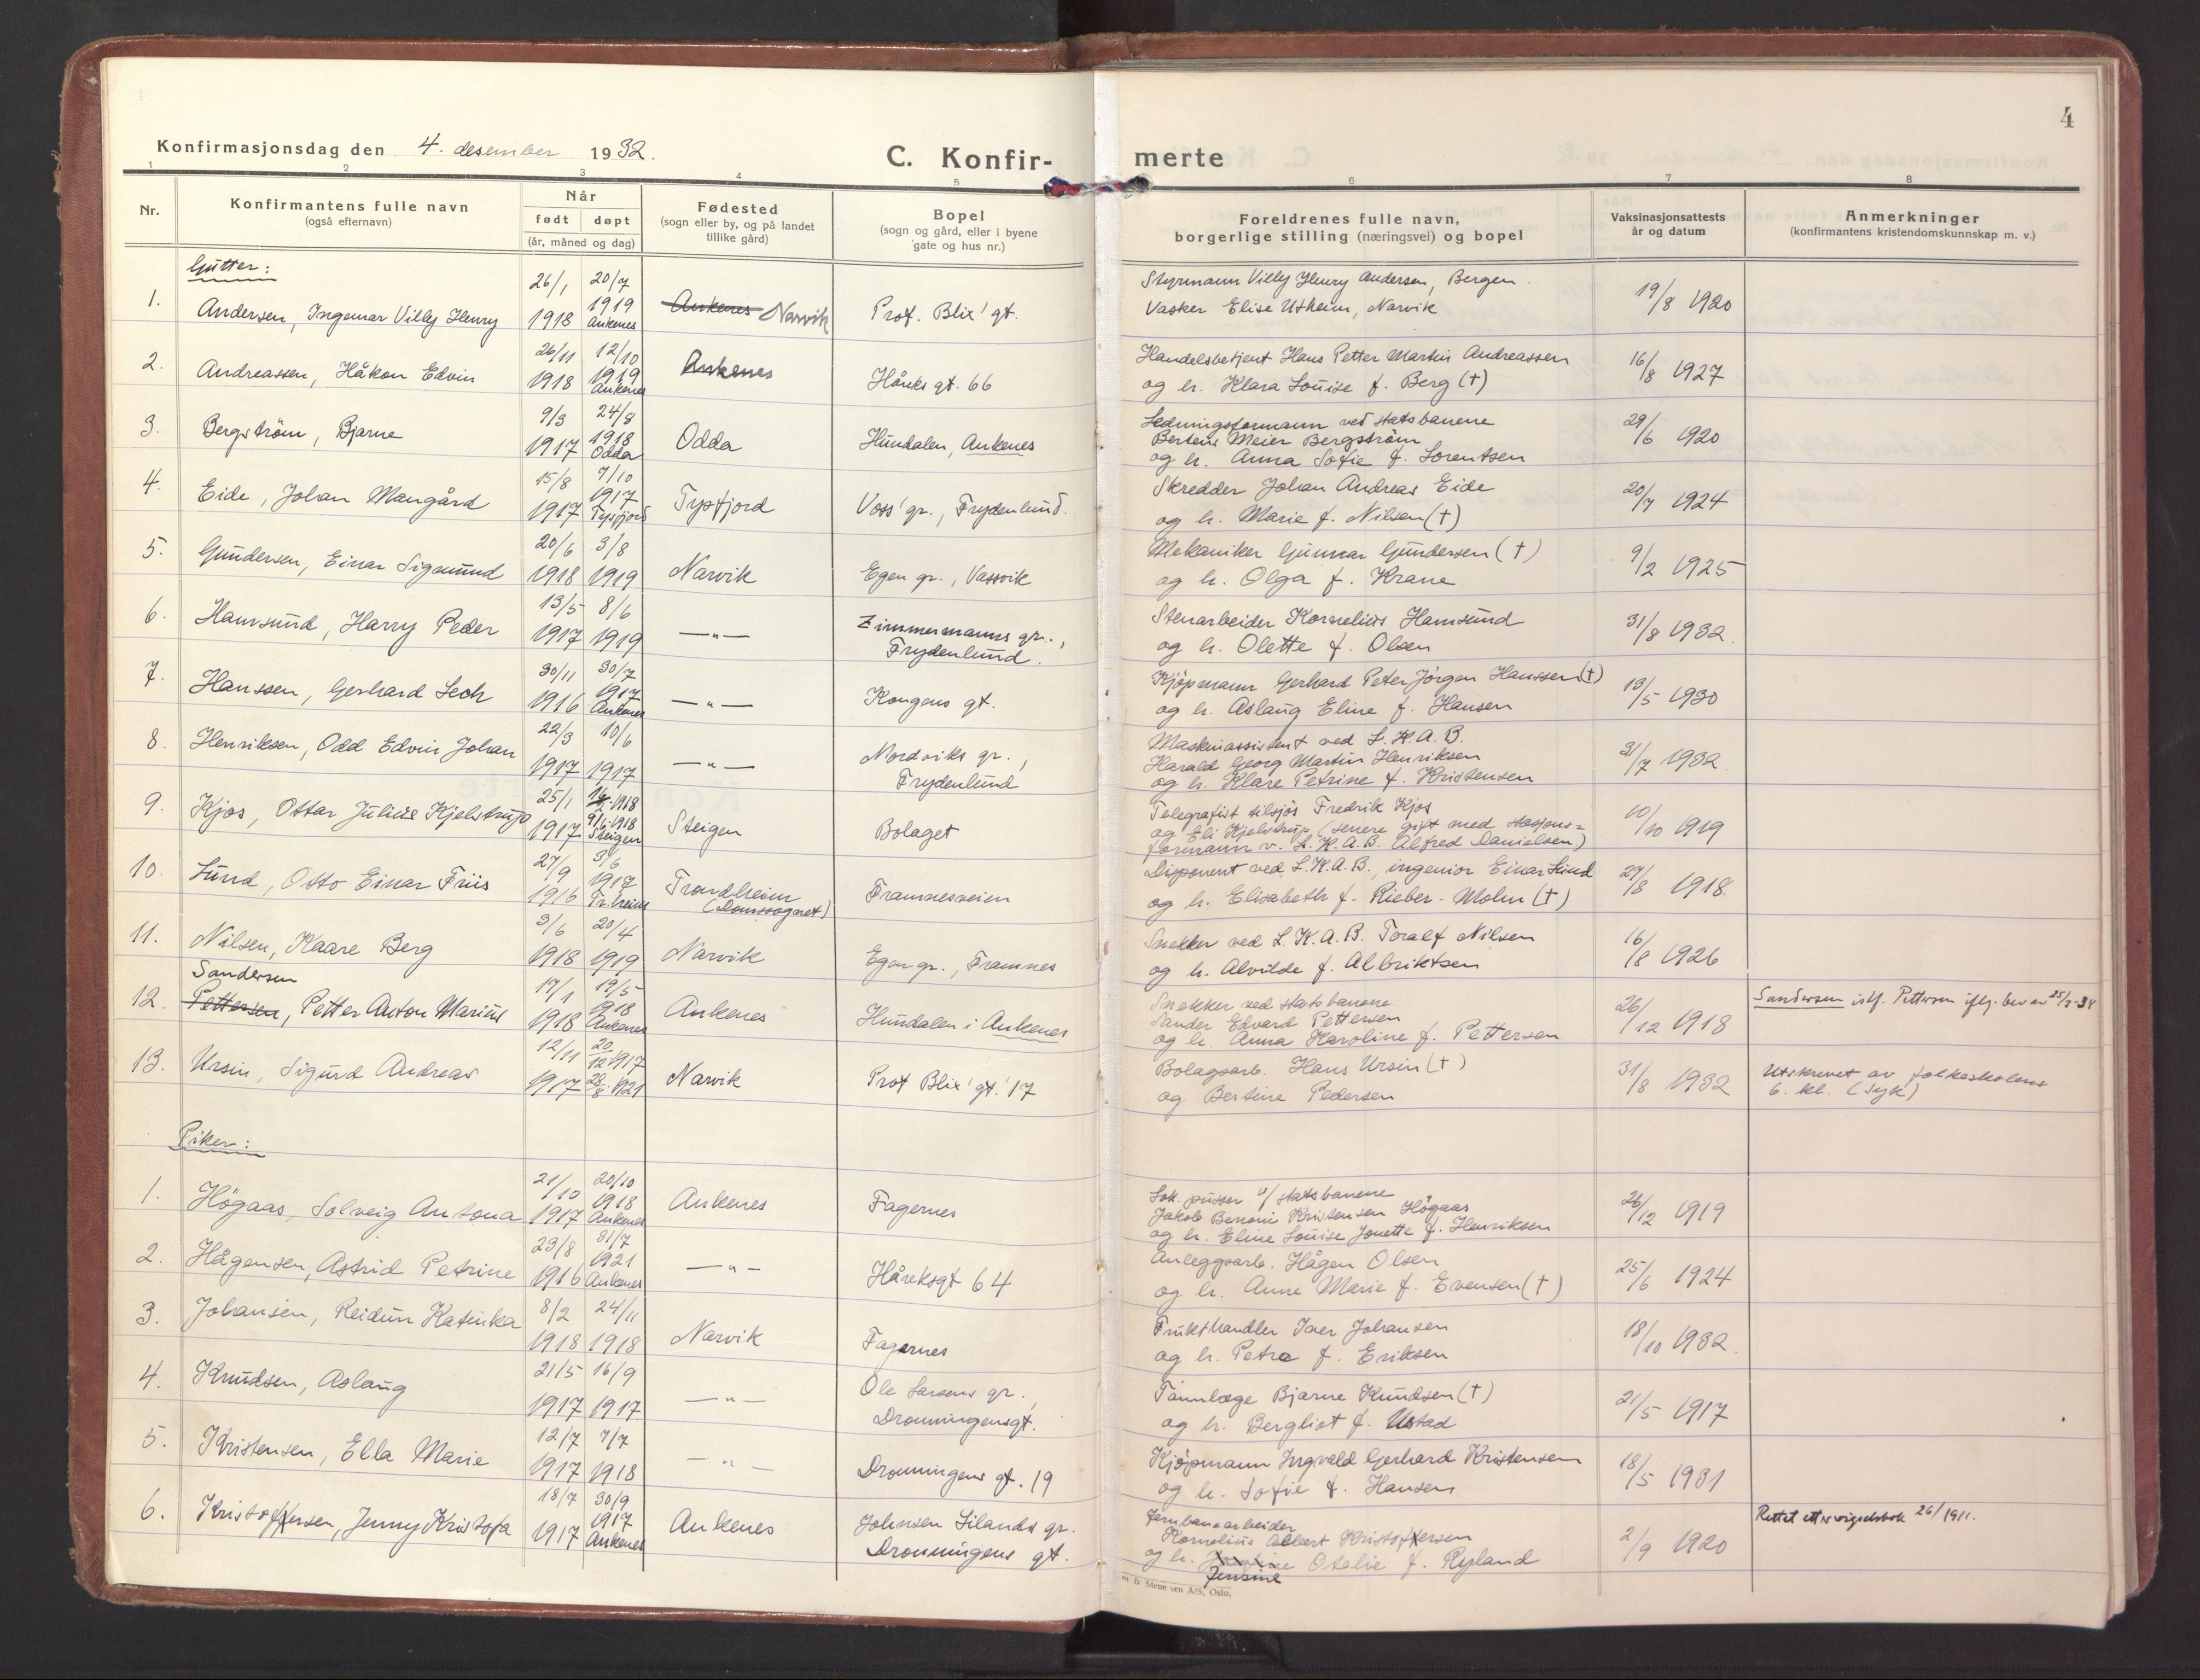 4
Konfirmasjonsdag den 4. desember 1932.
C. Konfir-
merte
1 2 3 4 5 6 7 8
Nr.
Konfirmantens fulle navn
(også efternavn)
Når
født døpt
(år, måned og dag)
Fødested
(sogn eller by, og på landet
tillike gård)
Bopel
(sogn og gård, eller i byene
gate og hus nr.)
Foreldrenes fulle navn,
borgerlige stilling (næringsvei) og bopel
Vaksinasjonsattests
år og datum
Anmerkninger
(konfirmantens kristendomskunnskap m. v.)
Gutter:
1. Andersen, Ingemar Villy Henry
26/1 1918
20/7 1919 Ankenes
Ankenes Narvik
Prof. Blix' gt.
Styrmann Villy Henry Andersen, Bergen.
Vasker Elise Utheim, Narvik
19/8 1920
2. Andreassen, Håkon Edvin
26/11 1918
12/10 1919 Ankenes
Ankenes
Håreks gt. 66
Handelsbetjent Hans Petter Martin Andreassen
og h. Klara Louise f. Berg (†)
16/8 1927
3. Bergström, Bjarne
9/3 1917
24/8 1918 Odda
Odda
Hundalen, Ankenes
Ledningsformann ved statsbanene
Meier Bergström
og h. Anna Sofie f. Lorentsen
29/6 1920
4. Eide, Johan Mangård
15/8 1917
7/10 1917 Tysfjord
Tysfjord
Voss' gr., Frydenlund.
Skredder Johan Andreas Eide
og h. Marie f. Nilsen (†)
20/7 1924
5. Gundersen, Einar Sigmund
20/6 1918
3/8 1919
Narvik
Egen gr., Vassvik
Mekaniker Gunnar Gundersen (†)
og h. Olga f. Krane
9/2 1925
6. Hamsund, Harry Peder
13/5 1917
8/6 1919
— " —
Zimmermanns gr.,
Frydenlund.
Stenarbeider Kornelius Hamsund
og h. Olette f. Olsen
31/8 1932.
7. Hanssen, Gerhard Lech
30/11 1916
30/7 1917 Ankenes
— " —
Kongens gt.
Kjöpmann Gerhard Peter Jörgen Hanssen (†)
og h. Aslaug Eline f. Hansen
13/5 1930
8. Henriksen, Odd Edvin Johan
22/3 1917
10/6 1917
— " —
Nordviks gr.,
Frydenlund
Maskinassistent ved L.K.A.B.
Harald Georg Martin Henriksen
og h. Klare Petrine f. Kristensen
31/7 1932
9. Kjos, Ottar Julius Kjelstrup
25/1 1917
1918
9/6 1918
Steigen
Steigen
Bolaget
Telegrafist tilsjös Fredrik Kjos
og Eli Kjelstrup (senere gift med stasjons=
formann v. L.K.A.B. Alfred Danielsen)
10/10 1919
10. Lund, Otto Einar Friis
27/9 1916
3/6 1917 Tr.heim
Trondheim
(Domssognet)
Framnesveien
Disponent ved L.K.A.B., ingeniör Einar Lund
og h. Elisabeth f. Rieber-Mohn (†)
27/8 1918
11. Nilsen, Kaare Berg
3/6 1918
20/4 1919
Narvik
Egen gr., Framnes
Snekker ved L.K.A.B. Toralf Nilsen
og h. Alvilde f. Albriktsen
16/8 1926
Sandersen
12. Pettersen, Petter Anton Marius
17/1 1918
19/5 1918 Ankenes
Ankenes
Hundalen i Ankenes
Snekker ved statsbanene
Sander Edvard Pettersen
og h. Anna Karoline f. Pettersen
26/12 1918
Sandersen istf. Pettersen iflg. bev av
13. Ursin, Sigurd Andreas
12/11 1917
20/12 1917
28/8 1921
Narvik
Prof Blix' gt. 17
Bolagsarb. Hans Ursin (†)
og Bertine Pedersen
31/8 1932
Utskrevet av folkeskolens
6. kl. (Syk)
Piker:
1. Högaas, Solveig Antona
21/10 1917
20/10 1918 Ankenes
Ankenes
Fagernes
Lok. pusser v/ statsbanene
Jakob Benoni Kristensen Högaas
og h. Eline Louise Jonette f. Henriksen
26/12 1919
2. Hågensen, Astrid Petrine
23/8 1916
31/7 1921 Ankenes
— " —
Håreksgt 64
Anleggsarb. Hågen Olsen
og h. Anne Marie f. Evensen (†)
25/6 1924
3. Johansen, Reidun Katinka
8/2 1918
24/11 1918
Narvik
Fagernes
Frukthandler Iver Johansen
og h. Petra f. Eriksen
18/10 1932.
4. Knudsen, Aslaug
21/5 1917
16/9 1917
— " —
Ole Larsens gr.,
Dronningensgt.
Tannlæge Bjarne Knudsen (†)
og h. Bergliot f. Ustad
21/5 1917
5. Kristensen, Ella Marie
12/7 1917
7/7 1918
— " —
Dronningens gt. 19
Kjöpmann Ingvald Gerhard Kristensen
og h. Sofie f. Hansen
18/5 1931
6. Kristoffersen, Jenny Kristofa
18/7 1917
30/9 1917 Ankenes
Ankenes
Johnsen Silands gr.
Dronningens gt.
Jernbanearbeider
Kornelius Albert Kristoffersen
og h. Otelie f. Ryland
Jensine
2/9 1920
Rettet etter vigselsbok 26/1911.
Stenersen A/S, Oslo.